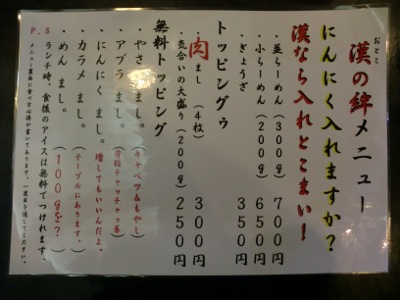 漢の絆メニュー
おとこ
にんにく入れますか？
漢なら入れとこまい！
・並らーめん（300g）700円
・小らーめん（200g）650円
・ぎょうざ 350円
トッピングゥ
・肉まし（4枚）300円
・気合いの大盛り（200g）250円
無料トッピング
・やさい まし。（キャベツ&もやし）
・アブラ まし。（背脂チャッチャ系）
・にんにく まし。増してもいいんだよ。
・カラメ まし。（テーブルにあります。）
・めん まし。（100gを？）
P.S ランチ時、食後のアイスは無料でつけれます。